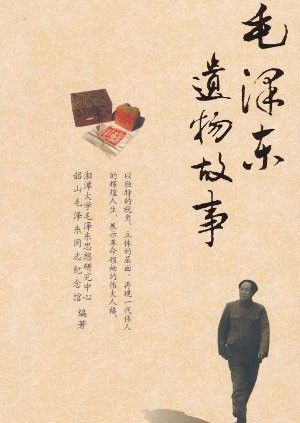 毛泽东
遗物故事
以独特的视角、立体的层面,再现一代伟人
的辉煌人生,展示革命领袖的伟大人格。
湘潭大学毛泽东思想研究中心
韶山毛泽东同志纪念馆
编著